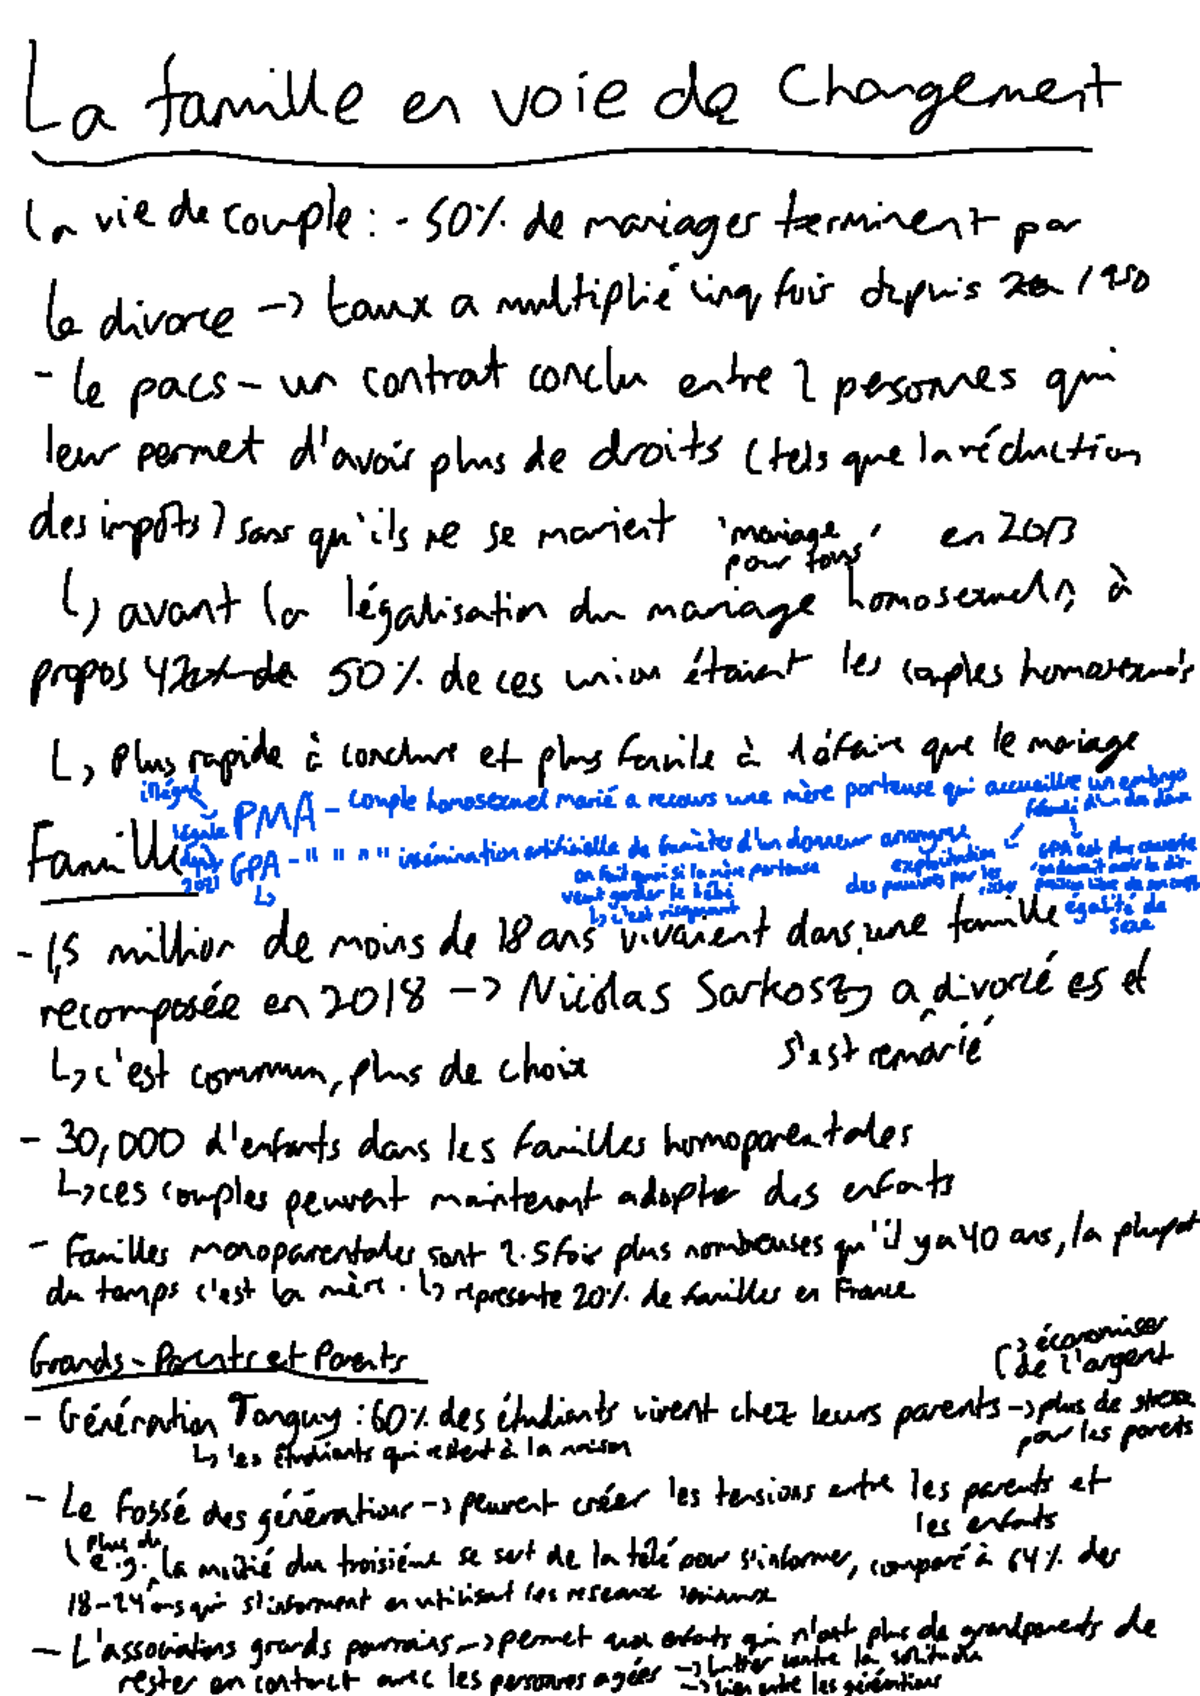 La famille en voie de Changement
la vie de couple : - 50% de mariages terminent par
le divorce -> taux a multiplié cinq fois depuis 1950
- le pacs - un contrat conclu entre 2 personnes qui
leur permet d'avoir plus de droits (tels que la réduction
des impôts) sans qu'ils ne se marient 'mariage pour tous' en 2013
↳ avant la légalisation du mariage homosexuel, à
propos 50% de ces union étaient les couples homosexuels
↳ plus rapide à conclure et plus facile à défaire que le mariage
illégal
PMA - couple homosexuel marié a recours une mère porteuse qui accueille un embryo
fécondé d'un des deux
Famille
légale depuis 2021
GPA - " " " " insémination artificielle de d'un donneur anonyme
on fait quoi si la mère porteuse
veut garder le bébé
↳ c'est risquant
exploitation
des pauvres par les riches
GPA est plus couverte
on devrait avoir la
égalité de
sexe
- 1,5 million de moins de 18 ans vivaient dans une famille
recomposée en 2018 -> Nicolas Sarkoszy a divorcé es et
s'est remarié
↳ c'est commun, plus de choix
- 30,000 d'enfants dans les familles homoparentales
↳ ces couples peuvent maintenant adopter des enfants
- Familles monoparentales sont 2.5 fois plus nombreuses qu'il y a 40 ans, la plupart
du temps c'est la mère. ↳ représente 20% de familles en France
Grands-Parents et Parents
-> économiser
de l'argent
- Génération Tanguy : 60% des étudiants vivent chez leurs parents -> plus de stress
pour les parents
↳ les étudiants qui restent à la maison
- Le fossé des générations -> peuvent créer les tensions entre les parents et
les enfants
↳ e.g. plus de la moitié du troisième se sert de la télé pour s'informer, comparé à 64% des
18-24 ans qui s'informent en utilisant les reseaux sociaux
- L'associations grands parrains -> permet aux enfants qui n'ont plus de grandparents de
rester en contact avec les personnes agées -> lutter contre la solitude
-> lien entre les générations